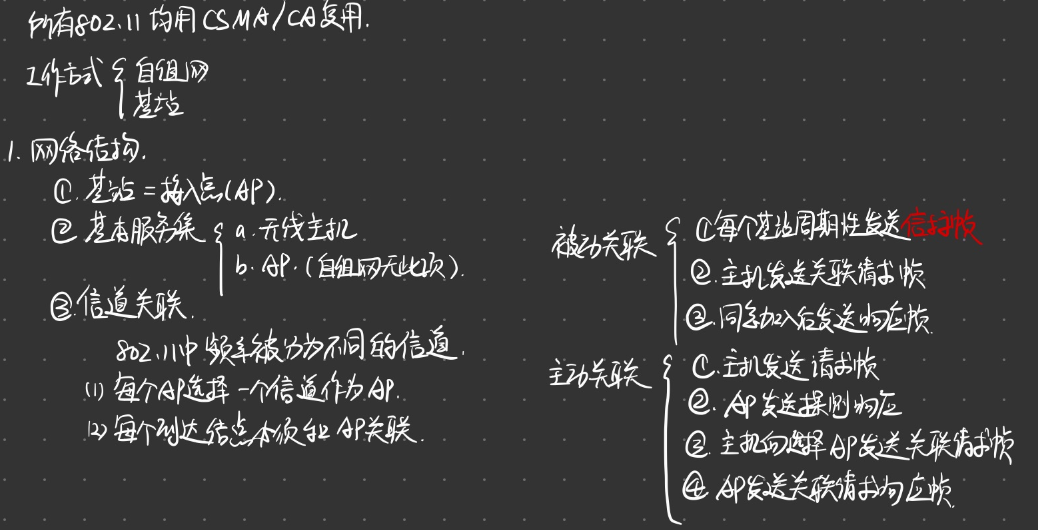 所有802.11均用CSMA/CA复用.
工作方式{自组网
基站
1.网络结构.
①.基站=接入点(AP).
②基本服务集{a.无线主机
b.AP.(自组网无此项).
③.信道关联.
802.11中频率被分为不同的信道.
(1)每个AP选择一个信道作为AP.
(2)每个到达结点必须和AP关联.
被动关联{①每个基站周期性发送信标帧
②.主机发送关联请求帧
③.同意加入后发送响应帧.
主动关联{①.主机发送请求帧
②.AP发送探测响应
③.主机向选择AP发送关联请求帧
④AP发送关联请求响应帧.